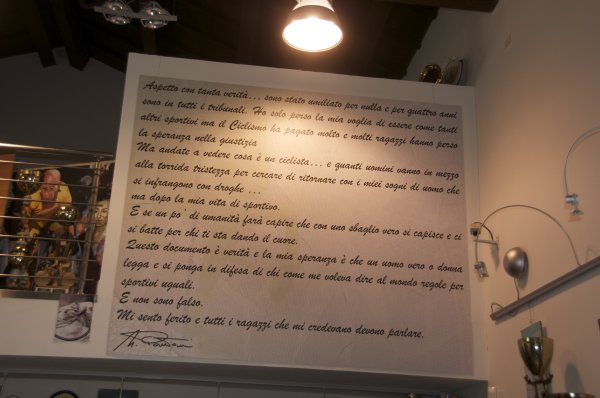 Aspetto con tanta verità... sono stato umiliato per nulla e per quattro anni
sono in tutti i tribunali. Ho solo perso la mia voglia di essere come tanti
altri sportivi ma il Ciclismo ha pagato molto e molti ragazzi hanno perso
la speranza nella giustizia
Ma andate a vedere cosa è un ciclista... e quanti uomini vanno in mezzo
alla torrida tristezza per cercare di ritornare con i miei sogni di uomo che
si infrangono con droghe ...
ma dopo la mia vita di sportivo.
E se un po' di umanità farà capire che con uno sbaglio vero si capisce e ci
si batte per chi ti sta dando il cuore.
Questo documento è verità e la mia speranza è che un uomo vero o donna
legga e si ponga in difesa di chi come me voleva dire al mondo regole per
sportivi uguali.
E non sono falso.
Mi sento ferito e tutti i ragazzi che mi credevano devono parlare.
M. Pantani